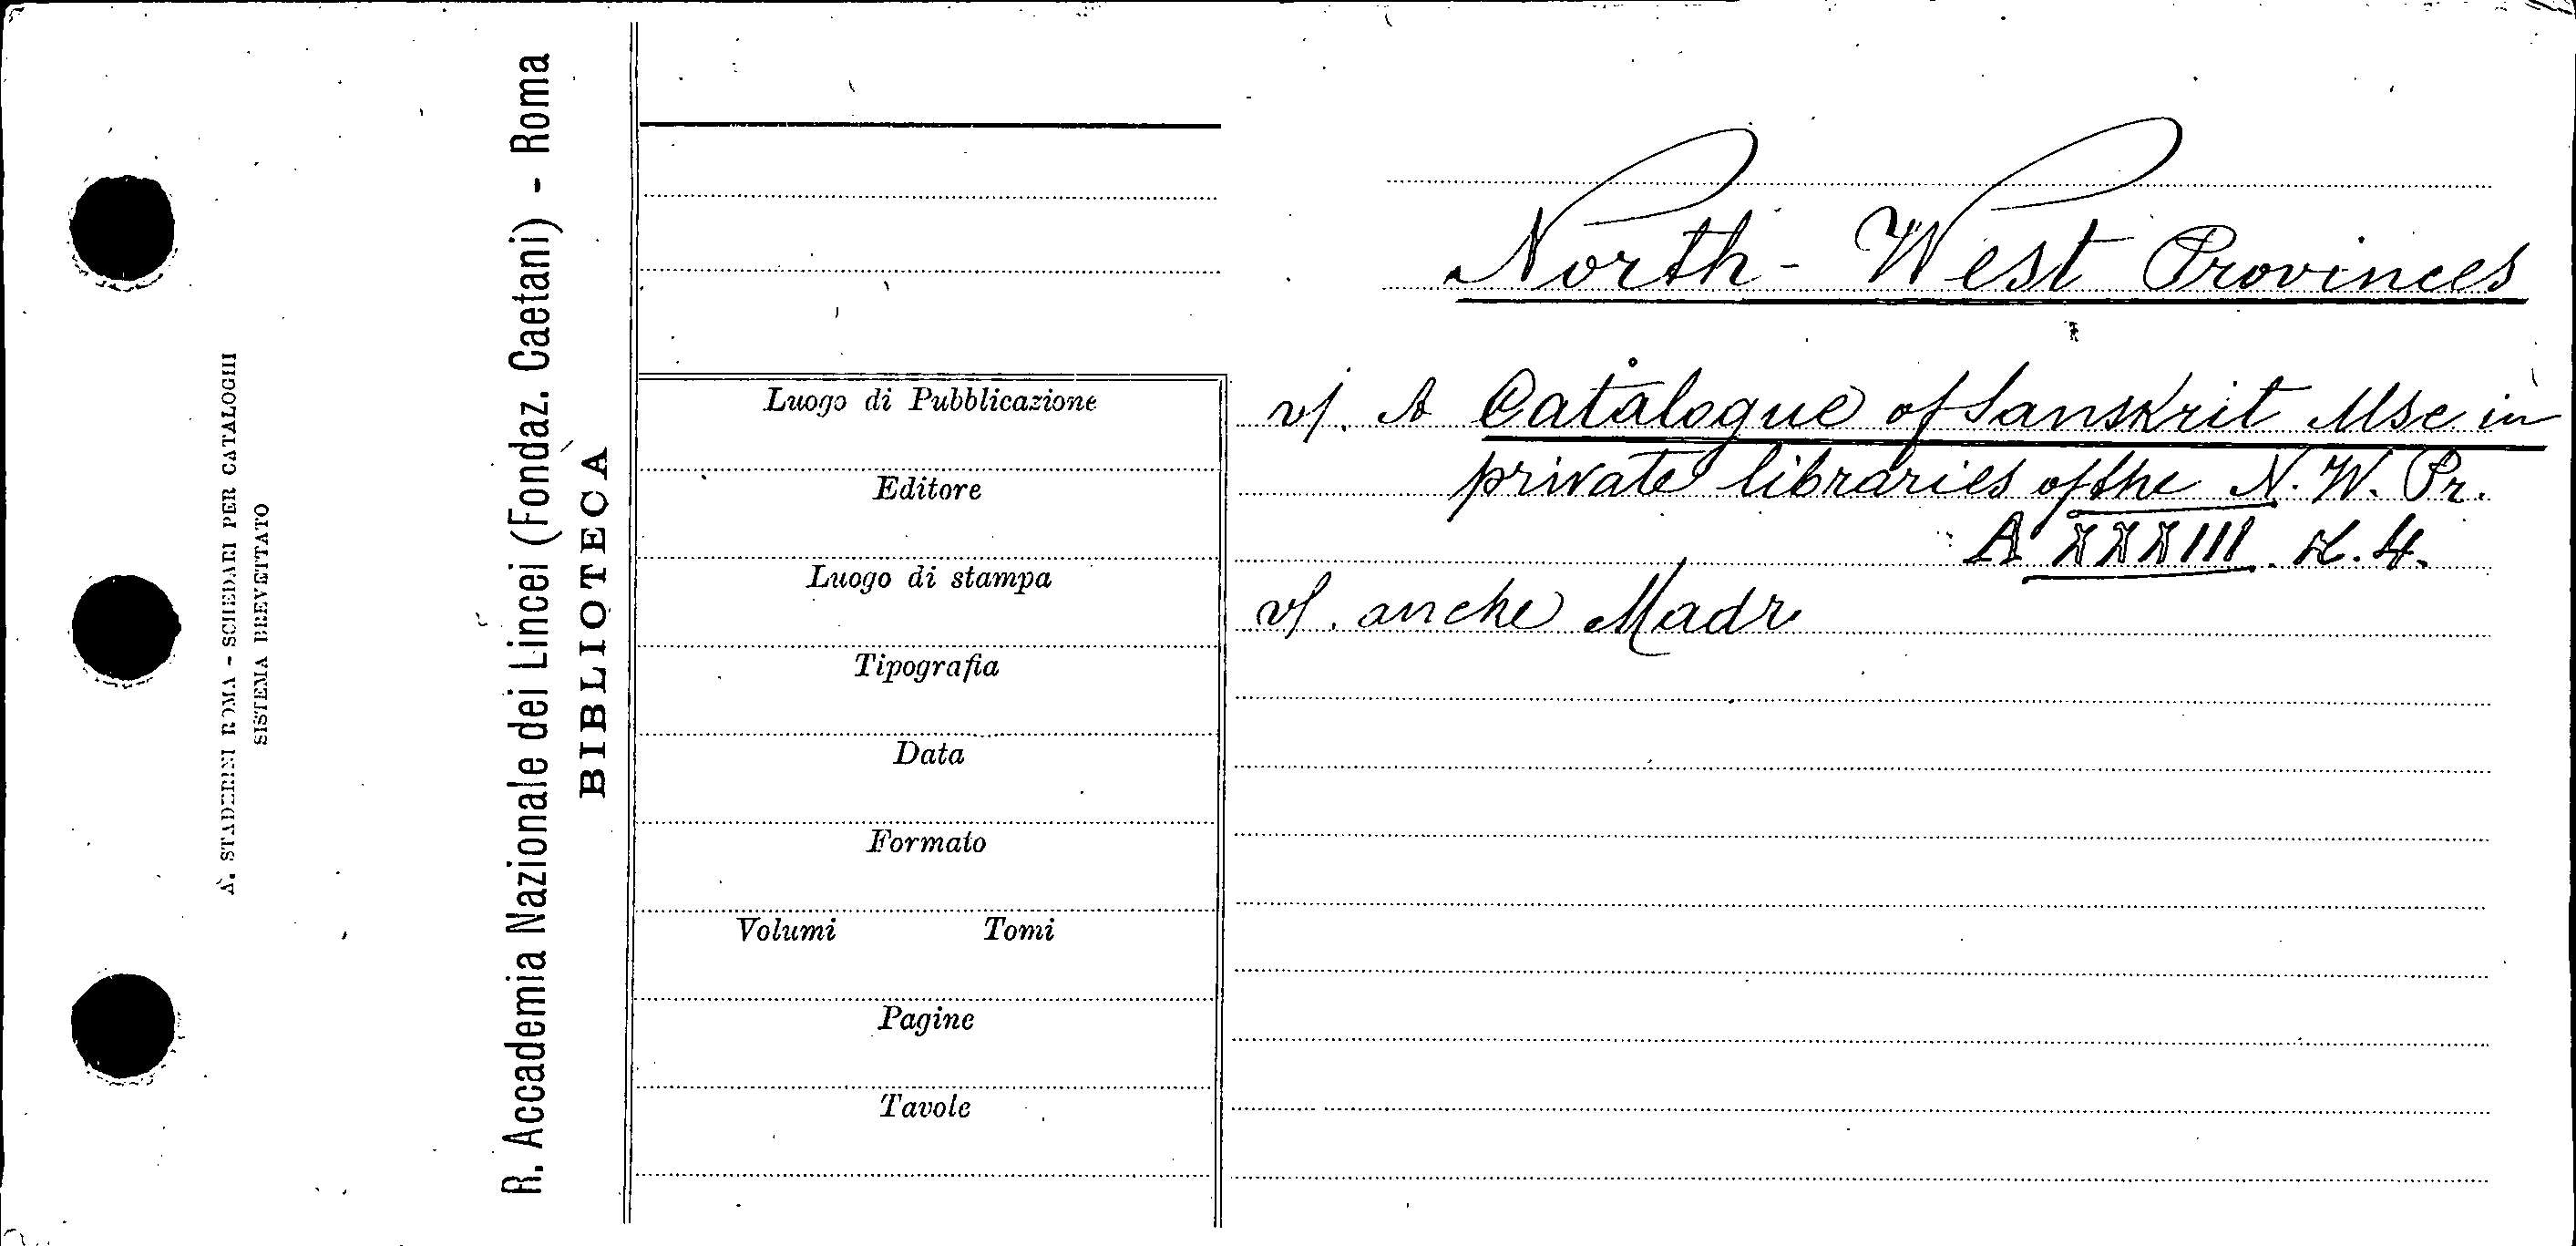 A. STADERINI ROMA - SCHEDARI PER CATALOGHI
SISTEMA BREVETTATO
R. Accademia Nazionale dei Lincei (Fondaz. Caetani) - Roma
BIBLIOTECA
Luogo di Pubblicazione
Editore
Luogo di stampa
Tipografia
Data
Formato
Volumi Tomi
Pagine
Tavole
North-West Provinces
v. A Catalogue of Sanskrit Mss in
private libraries of the N.W. Pr.
A XXXIII. 4.
v. anche Madr